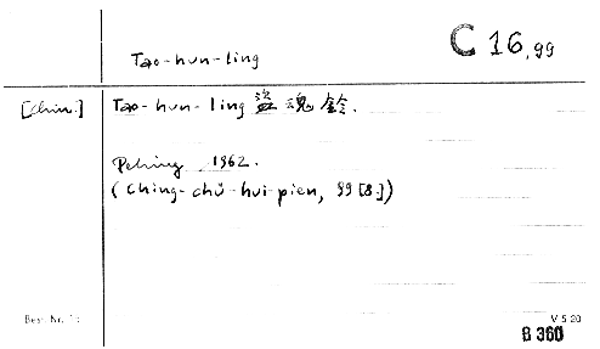 Tao-hun-ling
C 16,99
[chin.]
Tao-hun-ling 盜魂鈴.
Peking 1962.
(Ching-chü-hui-pien, 99 [8])
Best. Nr.
V 5 20
B 360